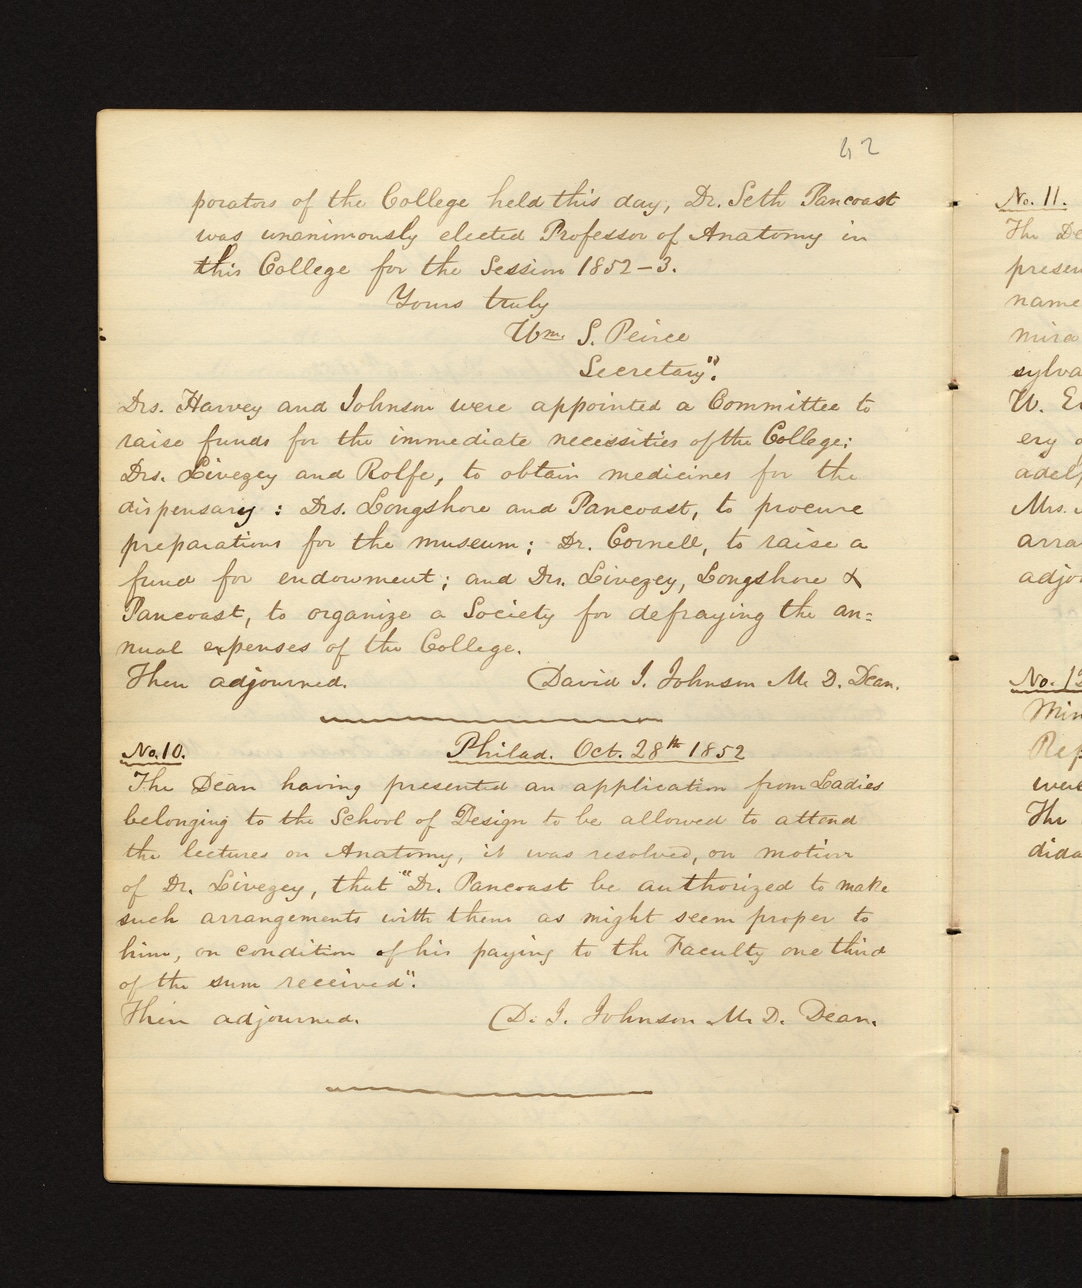 42
porators of the College held this day, Dr. Seth Pancoast
was unanimously elected Professor of Anatomy in
this College for the Session 1852-3.
Yours truly
Wm S. Peirce
Secretary".
Drs. Harvey and Johnson were appointed a Committee to
raise funds for the immediate necessities of the College;
Drs. Livezey and Rolfe, to obtain medicines for the
dispensary: Drs. Longshore and Pancoast, to procure
preparations for the museum; Dr. Cornell, to raise a
fund for endowment; and Drs. Livezey, Longshore &
Pancoast, to organize a Society for defraying the an=
nual expenses of the College.
Then adjourned. (David J. Johnson M. D. Dean.
No. 10. Philad. Oct. 28th 1852
The Dean having presented an application from Ladies
belonging to the School of Design to be allowed to attend
the lectures on Anatomy, it was resolved, on motion
of Dr. Livezey, that "Dr. Pancoast be authorized to make
such arrangements with them as might seem proper to
him, on condition of his paying to the Faculty one third
of the sum received".
Then adjourned. (D. J. Johnson M. D. Dean.
No. 11.
The De
presen
name
mira
sylva
W. E
ery
adel
Mrs.
arra
adjo
No. 12
Min
Rep
were
The
dida